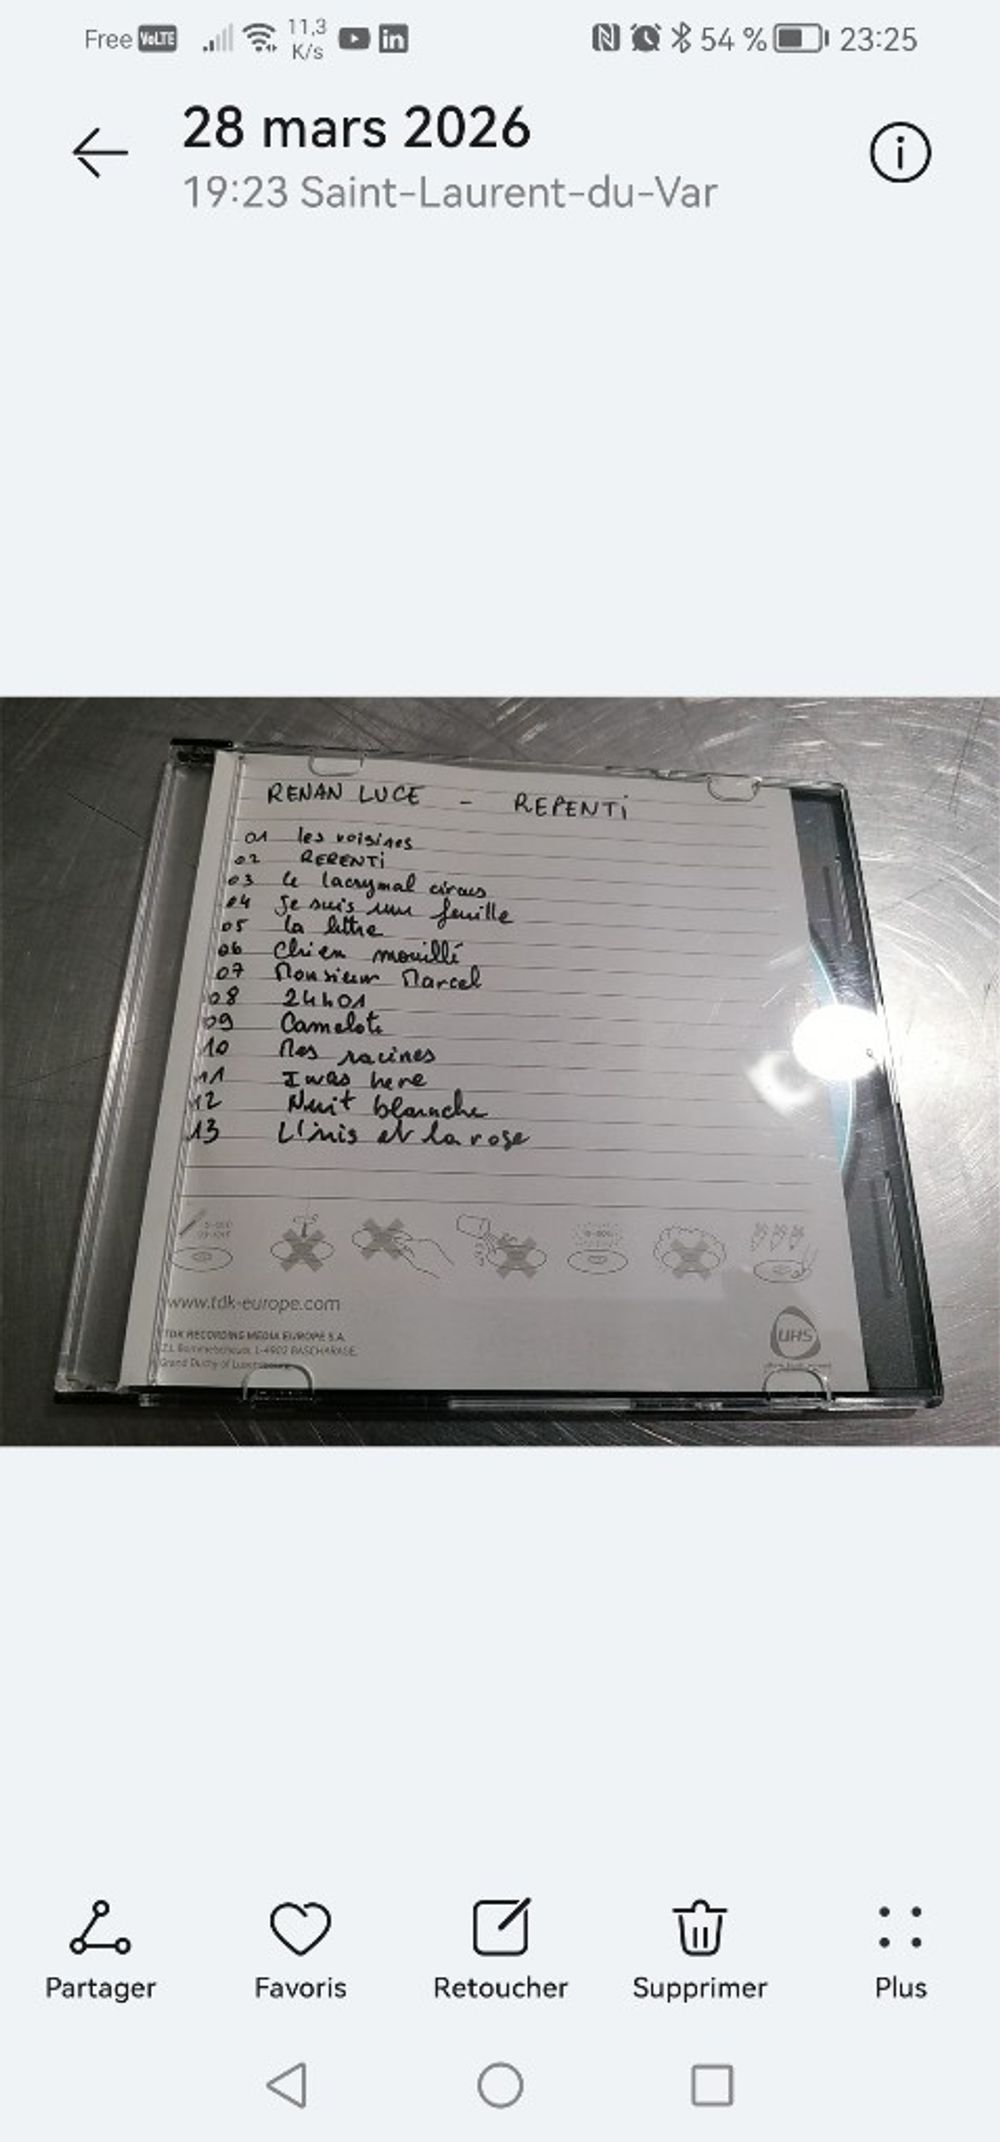 Free VoLTE 11,3 K/s in 54 % 23:25
28 mars 2026
19:23 Saint-Laurent-du-Var
RENAN LUCE - REPENTi
01 les voisines
02 REPENTi
03 Le lacrymal circus
04 Je suis une feuille
05 La lettre
06 Chien mouillé
07 Monsieur Marcel
08 24h01
09 Camelote
10 Mes racines
11 I was here
12 Nuit blanche
13 L'iris et la rose
www.tdk-europe.com
TDK RECORDING MEDIA EUROPE S.A.
Z.I. Bommelscheuer, L-4902 BASCHARAGE,
Grand Duchy of Luxembourg
UHS
Partager Favoris Retoucher Supprimer Plus